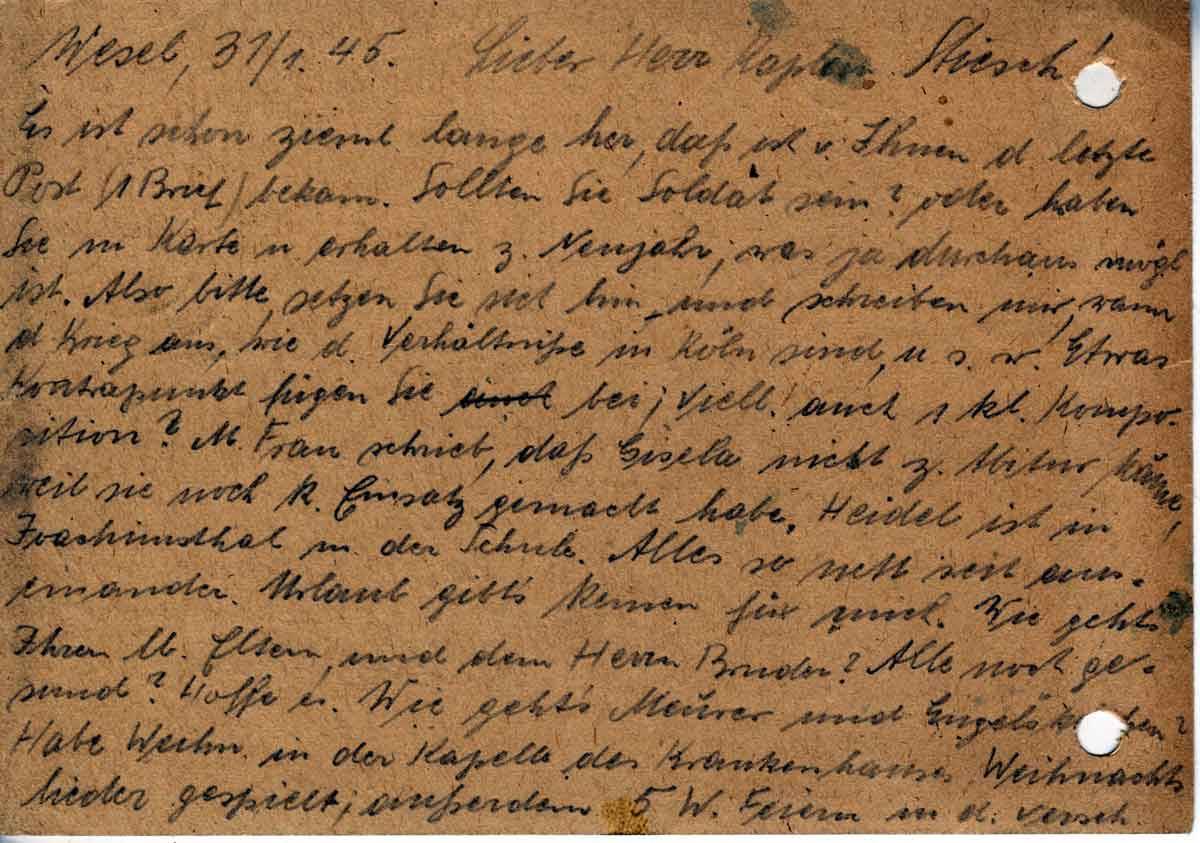 Wesel, 31/1. 45. Lieber Herr Kaplan Stiesch!
Es ist schon zieml. lange her, daß ich v. Ihnen d letzte
Post (1 Brief) bekam. Sollten Sie Soldat sein? oder haben
Sie m Karte n erhalten z. Neujahr, was ja durchaus mögl
ist. Also bitte, setzen Sie sich hin und schreiben mir, wann
d Krieg aus, wie d. Verhältniße in Köln sind, u. s. w. Etwas
Kontrapunkt fügen Sie bei; viell. auch 1 kl. Kompo-
sition? M. Frau schrieb, daß Gisela nicht z. Abitur käme,
weil sie noch k. Einsatz gemacht habe. Heidel ist in
Joachimsthal in der Schule. Alles so nett weit aus-
einander. Urlaub gibt's keinen für mich. Wie geht's
Ihren lb. Eltern und dem Herrn Bruder? Alle noch ge-
sund? Hoffe es. Wie geht's Meurer und
Habe Weihn. in der Kapelle des Krankenhauses Weihnachts
lieder gespielt, außerdem 5 W. Feiern in d. versch.